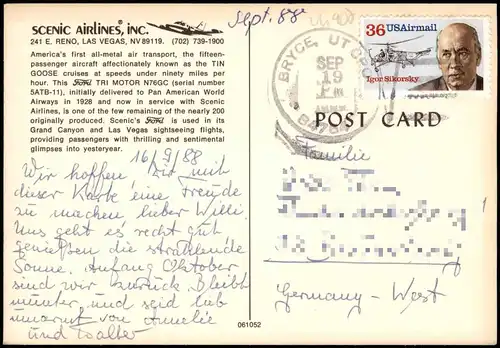 SCENIC AIRLINES, INC.
241 E. RENO, LAS VEGAS, NV 89119. (702) 739-1900
America's first all-metal air transport, the fifteen-
passenger aircraft affectionately known as the TIN
GOOSE cruises at speeds under ninety miles per
hour. This Ford TRI MOTOR N76GC (serial number
5ATB-11), initially delivered to Pan American World
Airways in 1928 and now in service with Scenic
Airlines, is one of the few remaining of the nearly 200
originally produced. Scenic's Ford is used in its
Grand Canyon and Las Vegas sightseeing flights,
providing passengers with thrilling and sentimental
glimpses into yesteryear.
Sept. 88
BRYCE, UT
SEP
19
36 USAirmail
Igor Sikorsky
POST CARD
16/9/88
Wir hoffen, Dir mit
dieser Karte eine Freude
zu machen, lieber Willi.
Uns geht es recht gut,
genießen die strahlende
Sonne. Anfang Oktober
sind wir zurück. Bleibt
munter, und seid lieb
umarmt von Amelie
und Walter
Familie
Germany-West
061052